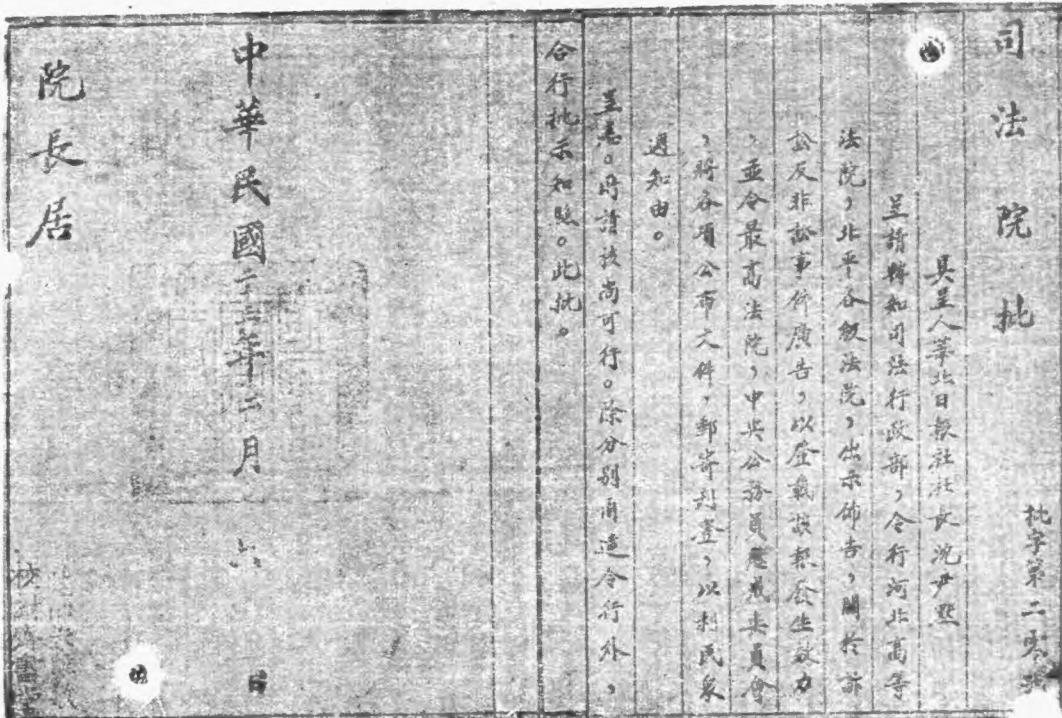 司法院批
批字第二零號
具呈人華北日報社社長沈尹默
呈請轉知司法行政部，令行河北高等
法院，北平各級法院，出示佈告，關於訴
訟及非訟事件廣告，以登載該報發生效力
，並令最高法院，中央公務員懲戒委員會
，將各項公布文件，郵寄刊登，以利民眾
週知由。
呈悉。所請該尚可行。除分別函達令行外，
合行批示知照。此批。
中華民國二十三年二月六日
院長居
校對